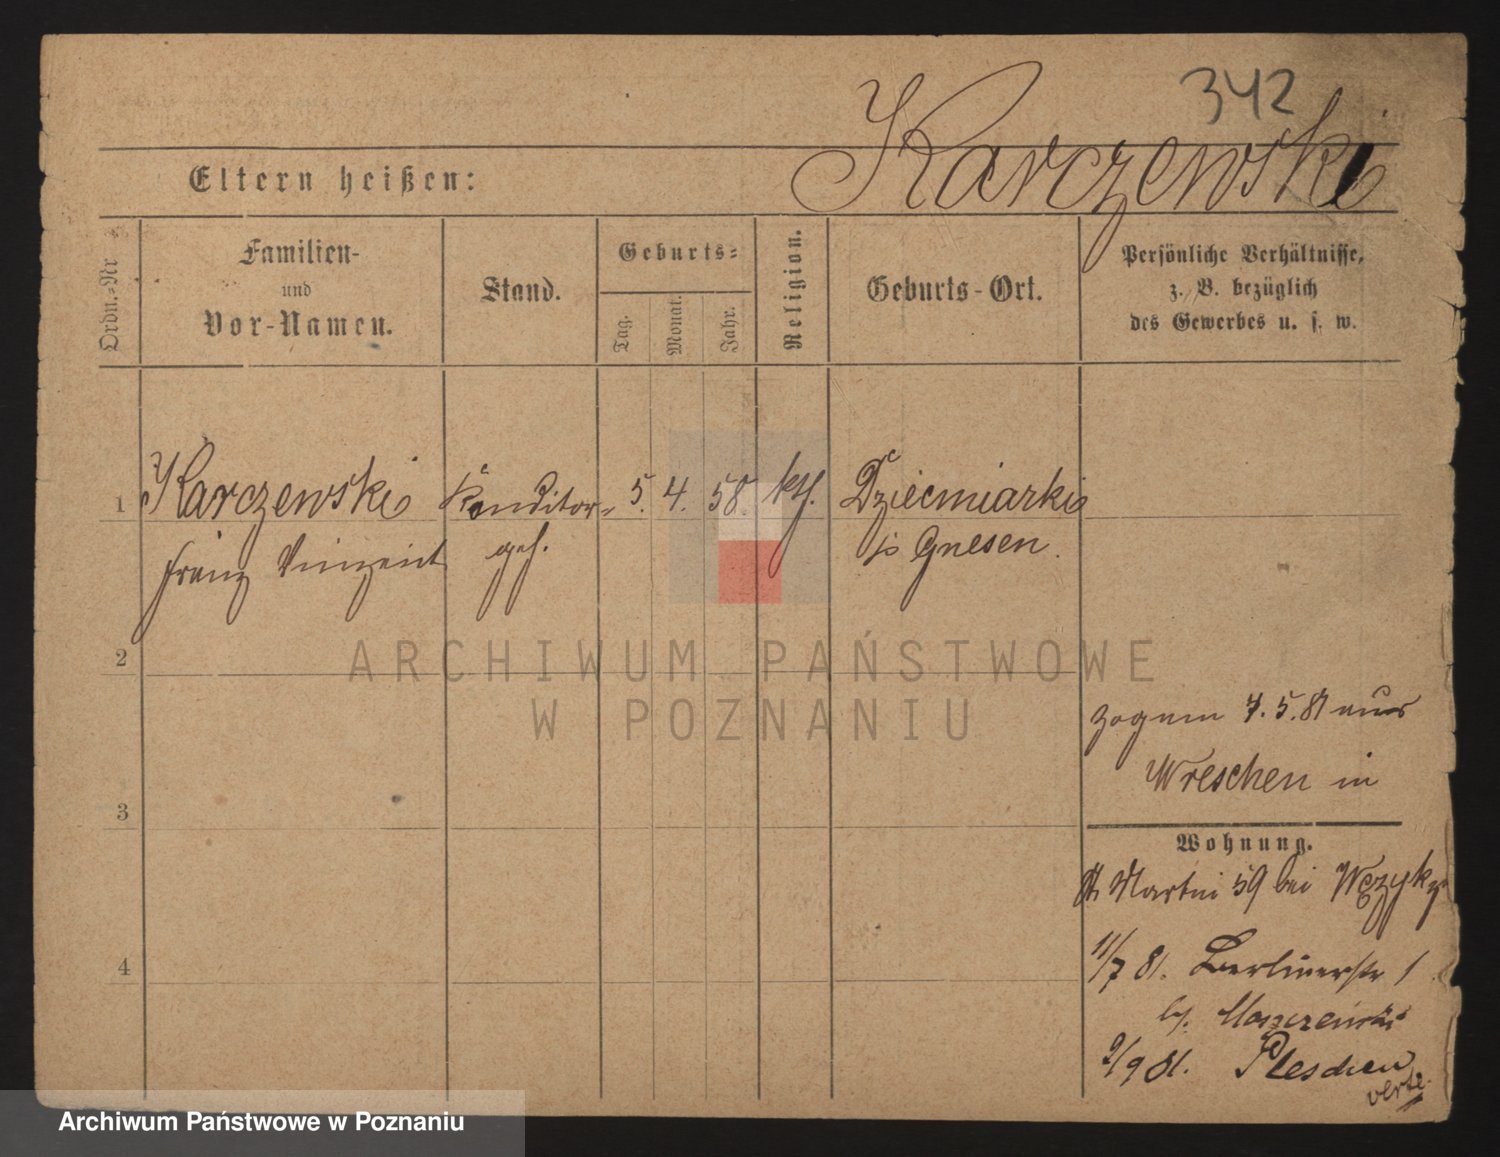 342
Karczewski
Eltern heißen:
Ordn.-Nr
Familien-
und
Vor-Namen.
Stand.
Geburts-
Tag.
Monat.
Jahr.
Religion.
Geburts-Ort.
Persönliche Verhältnisse,
z. B. bezüglich
des Gewerbes u. s. w.
1 Karczewski Konditor- 5. 4. 58. kth. Dziecmiarki
Franz Vinzent geh. Gnesen.
2
ARCHIWUM PAŃSTWOWE
W POZNANIU
zog am 7.5.81 aus
Wreschen in
3
Wohnung.
St. Martin 59 bei Węzyk
11/7 81. Berlinerstr 1
4
2/9 81. Pleschen
verte.
Archiwum Państwowe w Poznaniu